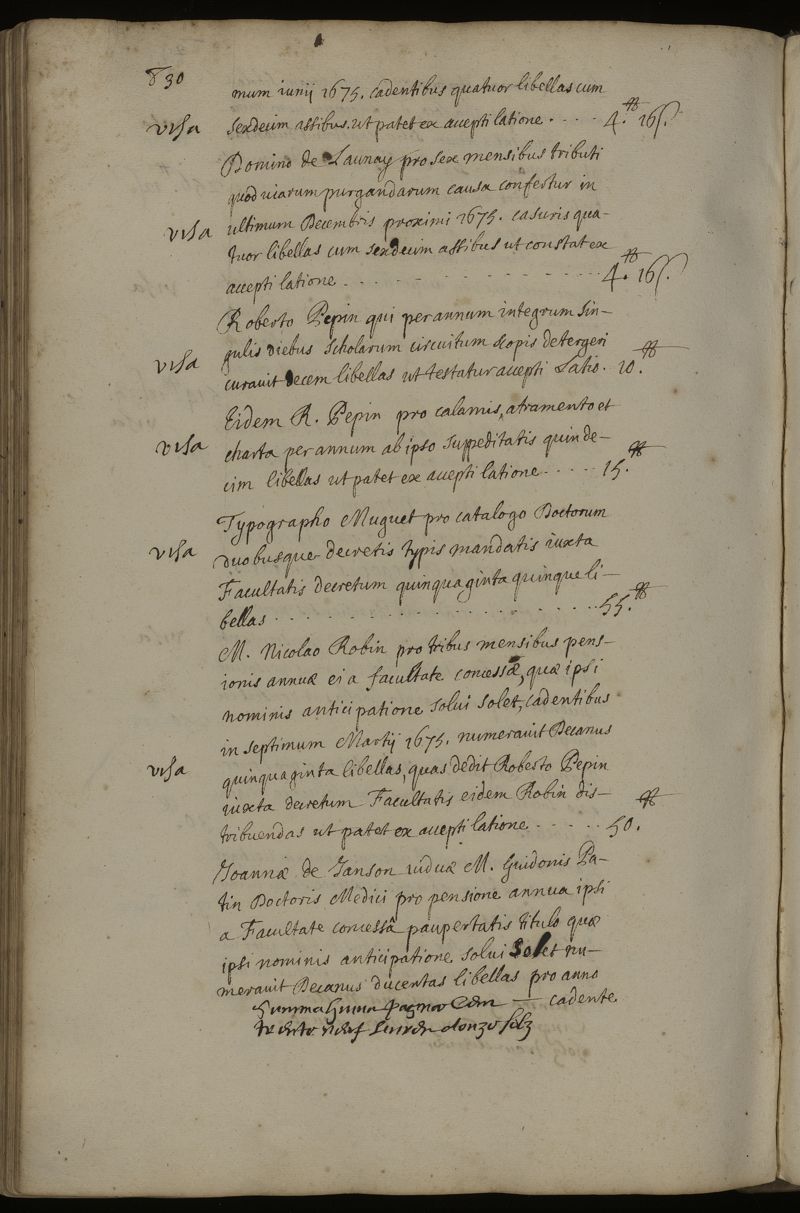 830
mum iunij 1675. cadentibus quatuor libellas cum
visa sexdecim assibus. ut patet ex accepti latione . . . . . 4.# 16 s.
Domino de Launay pro sex mensibus tributi
quod viarum purgandarum causa confertur in
visa ultimum Decembris proximi 1675. casuris qua-
tuor libellas cum sexdecim assibus ut constat ex
accepti latione . . . . . . . . . . . . . 4.# 16 s.
Roberto Pepin qui per annum integrum sin-
visa gulis diebus scholarum circuitum scopis detergeri
curavit decem libellas ut testatur accepti Latio. 10.#
Eidem R. Pepin pro calamis, atramento et
visa charta per annum ab ipso suppeditatis quinde-
cim libellas ut patet ex accepti latione . . . . . 15.#
Typographo Muguet pro catalogo Doctorum
visa duobusque decretis typis mandatis iuxta
Facultatis decretum quinquaginta quinque li-
bellas . . . . . . . . . . . . . . . . . . 55.#
M. Nicolao Robin pro tribus mensibus pens-
ionis annuæ ei a facultate concessæ, quæ ipsi
nominis anticipatione solui solet, cadentibus
in septimum Martij 1675. numeravit Decanus
visa quinquaginta libellas, quas dedit Roberto Pepin
iuxta decretum Facultatis eidem Robin dis-
tribuendas ut patet ex accepti latione . . . . . 50.#
Joannæ de Janson viduæ M. Guidonis Pa-
tin Doctoris Medici pro pensione annua ipsi
a Facultate concessâ paupertatis titulo quæ
ipsi nominis anticipatione solui solet nu-
meravit Decanus ducentas libellas pro anno
cadente
Summa huius paginæ Cem
trente neuf livres